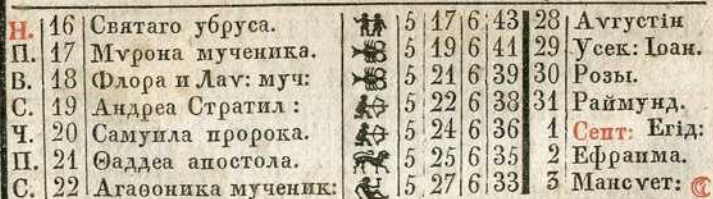 Н. 16 Святаго убруса. 5 17 6 43 28 Аѵгустін
П. 17 Мѵрона мученика. 5 19 6 41 29 Усек: Іоан.
В. 18 Флора и Лаѵ: муч: 5 21 6 39 30 Розы.
С. 19 Андреа Стратил: 5 22 6 38 31 Раймунд.
Ч. 20 Самуила пророка. 5 24 6 36 1 Септ: Егід:
П. 21 Ѳаддеа апостола. 5 25 6 35 2 Ефраима.
С. 22 Агаѳоника мученик: 5 27 6 33 3 Мансѵет: